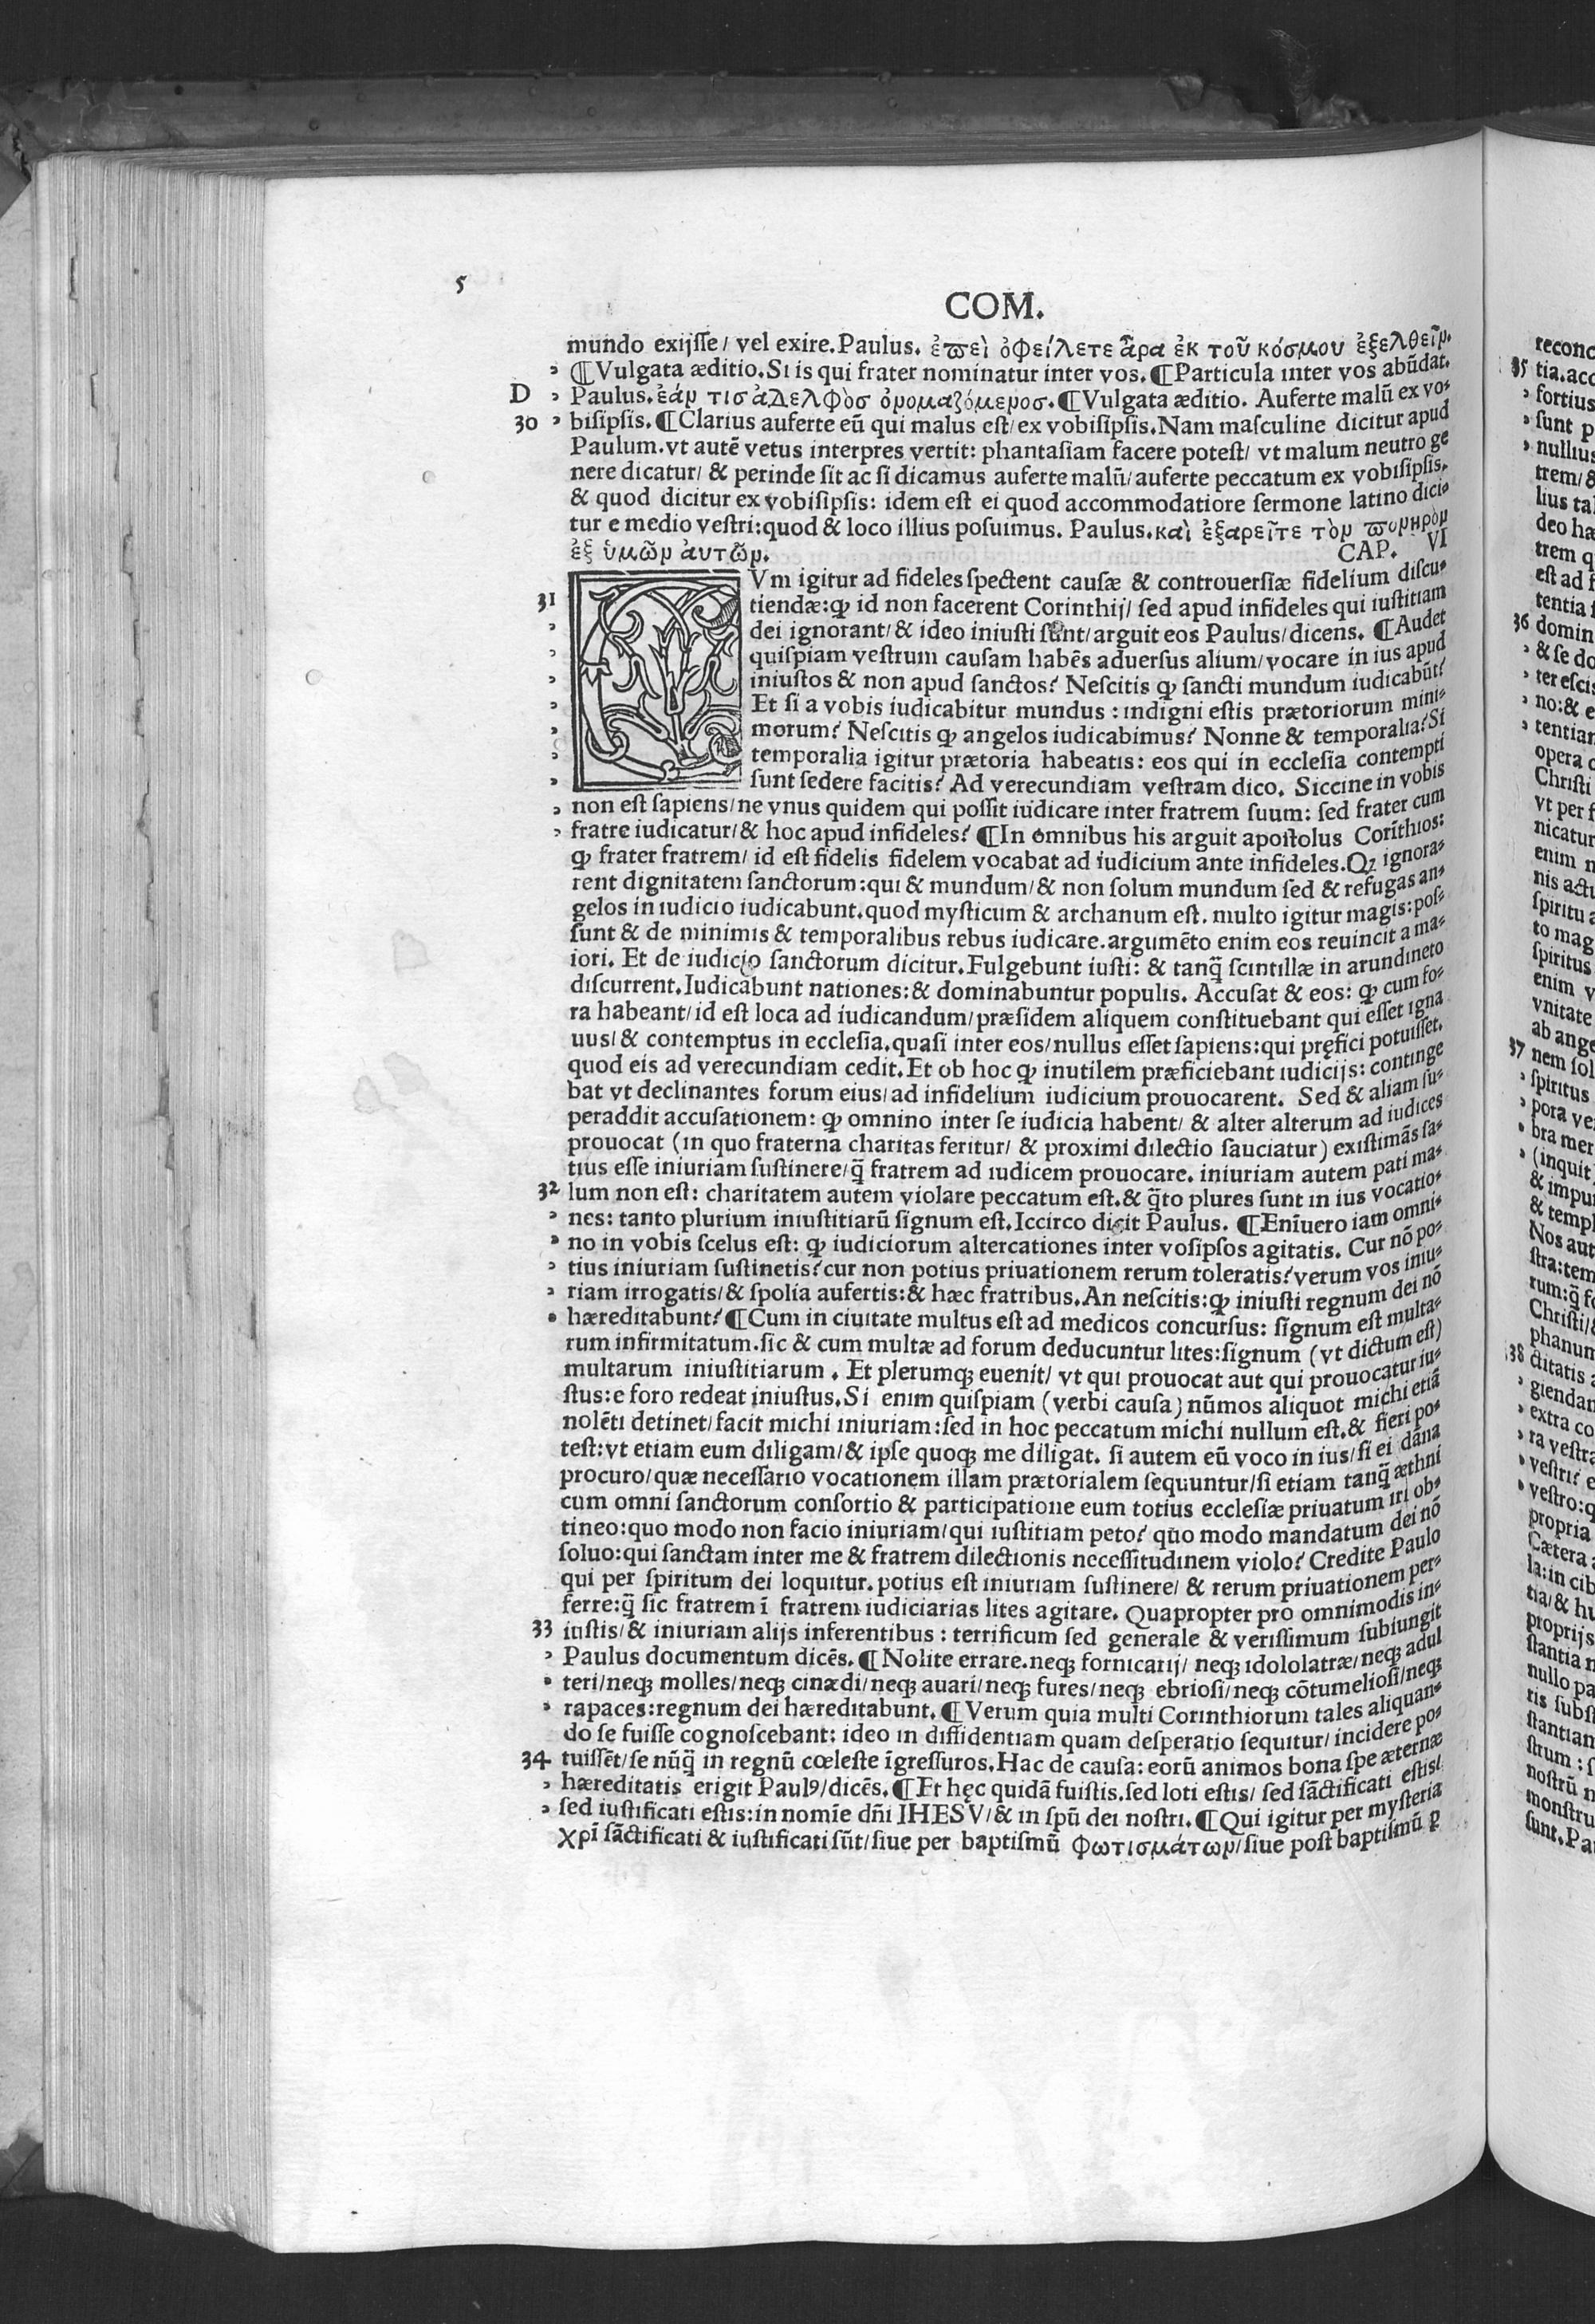 5
COM.
mundo exijsse/ vel exire.Paulus. ἐπεὶ ὀφείλετε ἆρα ἐκ τοῦ κόσμου ἐξελθεῖν.
¶Vulgata æditio.Si is qui frater nominatur inter vos.¶Particula inter vos abūdat.
D Paulus.ἐάν τισ ἀδελφὸσ ὀνομαζόμενοσ.¶Vulgata æditio. Auferte malū ex vo-
30 bisipsis.¶Clarius auferte eū qui malus est/ex vobisipsis.Nam masculine dicitur apud
Paulum.vt autē vetus interpres vertit: phantasiam facere potest/ vt malum neutro ge
nere dicatur/ & perinde sit ac si dicamus auferte malū/auferte peccatum ex vobisipsis.
& quod dicitur ex vobisipsis: idem est ei quod accommodatiore sermone latino dici-
tur e medio vestri:quod & loco illius posuimus. Paulus.καὶ ἐξαρεῖτε τὸν πονηρὸν
ἐξ ὑμῶν ἀυτῶν. CAP. VI
CVm igitur ad fideles spectent causæ & controuersiæ fidelium discu-
31 tiendæ:ꝙ id non facerent Corinthij/ sed apud infideles qui iustitiam
dei ignorant/& ideo iniusti sunt/arguit eos Paulus/dicens. ¶Audet
quispiam vestrum causam habēs aduersus alium/vocare in ius apud
iniustos & non apud sanctos? Nescitis ꝙ sancti mundum iudicabūt?
Et si a vobis iudicabitur mundus : indigni estis prætoriorum mini-
morum? Nescitis ꝙ angelos iudicabimus? Nonne & temporalia?Si
temporalia igitur prætoria habeatis: eos qui in ecclesia contempti
sunt sedere facitis? Ad verecundiam vestram dico. Siccine in vobis
non est sapiens/ne vnus quidem qui possit iudicare inter fratrem suum: sed frater cum
fratre iudicatur/& hoc apud infideles? ¶In omnibus his arguit apostolus Corīthios:
ꝙ frater fratrem/ id est fidelis fidelem vocabat ad iudicium ante infideles.Qꝫ ignora-
rent dignitatem sanctorum:qui & mundum/& non solum mundum sed & refugas an-
gelos in iudicio iudicabunt.quod mysticum & archanum est. multo igitur magis:pos-
sunt & de minimis & temporalibus rebus iudicare.argumēto enim eos reuincit a ma-
iori. Et de iudicio sanctorum dicitur.Fulgebunt iusti: & tanq̄ scintillæ in arundineto
discurrent.Iudicabunt nationes:& dominabuntur populis. Accusat & eos: ꝙ cum fo-
ra habeant/id est loca ad iudicandum/præsidem aliquem constituebant qui esset igna
uus/& contemptus in ecclesia.quasi inter eos/nullus esset sapiens:qui pręfici potuisset.
quod eis ad verecundiam cedit.Et ob hoc ꝙ inutilem præficiebant iudicijs: continge
bat vt declinantes forum eius/ad infidelium iudicium prouocarent. Sed & aliam su-
peraddit accusationem: ꝙ omnino inter se iudicia habent/ & alter alterum ad iudices
prouocat (in quo fraterna charitas feritur/ & proximi dilectio sauciatur) existimās sa-
tius esse iniuriam sustinere/q̄ fratrem ad iudicem prouocare. iniuriam autem pati ma-
32 lum non est: charitatem autem violare peccatum est.& q̄to plures sunt in ius vocatio-
nes: tanto plurium iniustitiarū signum est.Iccirco dicit Paulus. ¶Enīuero iam omni-
no in vobis scelus est: ꝙ iudiciorum altercationes inter vosipsos agitatis. Cur nō po-
tius iniuriam sustinetis?cur non potius priuationem rerum toleratis?verum vos iniu-
riam irrogatis/& spolia aufertis:& hæc fratribus.An nescitis:ꝙ iniusti regnum dei nō
hæreditabunt?¶Cum in ciuitate multus est ad medicos concursus: signum est multa-
rum infirmitatum.sic & cum multæ ad forum deducuntur lites:signum (vt dictum est)
multarum iniustitiarum . Et plerumqꝫ euenit/ vt qui prouocat aut qui prouocatur iu-
stus:e foro redeat iniustus.Si enim quispiam (verbi causa) nūmos aliquot michi etiā
nolēti detinet/facit michi iniuriam:sed in hoc peccatum michi nullum est.& fieri po-
test:vt etiam eum diligam/& ipse quoqꝫ me diligat. si autem eū voco in ius/si ei dāna
procuro/quæ necessario vocationem illam prætorialem sequuntur/si etiam tanq̄ æthni
cum omni sanctorum consortio & participatione eum totius ecclesiæ priuatum iri ob-
tineo:quo modo non facio iniuriam/qui iustitiam peto? quo modo mandatum dei nō
soluo:qui sanctam inter me & fratrem dilectionis necessitudinem violo? Credite Paulo
qui per spiritum dei loquitur.potius est iniuriam sustinere/ & rerum priuationem per-
ferre:q̄ sic fratrem ī fratrem iudiciarias lites agitare. Quapropter pro omnimodis in-
33 iustis/& iniuriam alijs inferentibus : terrificum sed generale & verissimum subiungit
Paulus documentum dicēs.¶Nolite errare.neqꝫ fornicarij/ neqꝫ idololatræ/neqꝫ adul
teri/neqꝫ molles/neqꝫ cinædi/neqꝫ auari/neqꝫ fures/neqꝫ ebriosi/neqꝫ cōtumeliosi/neqꝫ
rapaces:regnum dei hæreditabunt.¶Verum quia multi Corinthiorum tales aliquan-
do se fuisse cognoscebant: ideo in diffidentiam quam desperatio sequitur/ incidere po-
34 tuissēt/se nūq̄ in regnū cœleste īgressuros.Hac de causa: eorū animos bona spe æternæ
hæreditatis erigit Paulꝰ/dicēs.¶Et hęc quidā fuistis.sed loti estis/ sed sāctificati estis/
sed iustificati estis:in nomīe dn̄i IHESV/& in spū dei nostri.¶Qui igitur per mysteria
χρ̄ι sāctificati & iustificati sūt/siue per baptismū φωτισμάτων/siue post baptismū ꝑ